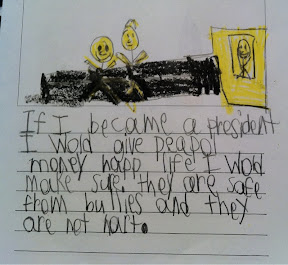 If I became a president
I wold give peapol
money happ life I wold
make sure. they are safe
from bullies and they
are not hart.